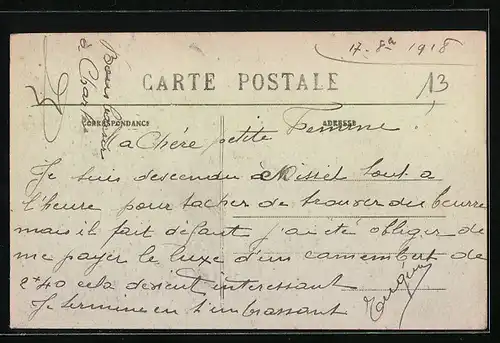 17-8ª 1918
Bons baisers
à Charles
CARTE POSTALE
13
CORRESPONDANCE
ADRESSE
Ma Chére petite Femme!
Je suis descendu à Missel tout a
l'heure pour tacher de trouver du beurre
mais il fait défaut j'ai été obliger de
me payer le luxe d'un camembert de
2f40 cela devient interessant
Je termine en t'embrassant